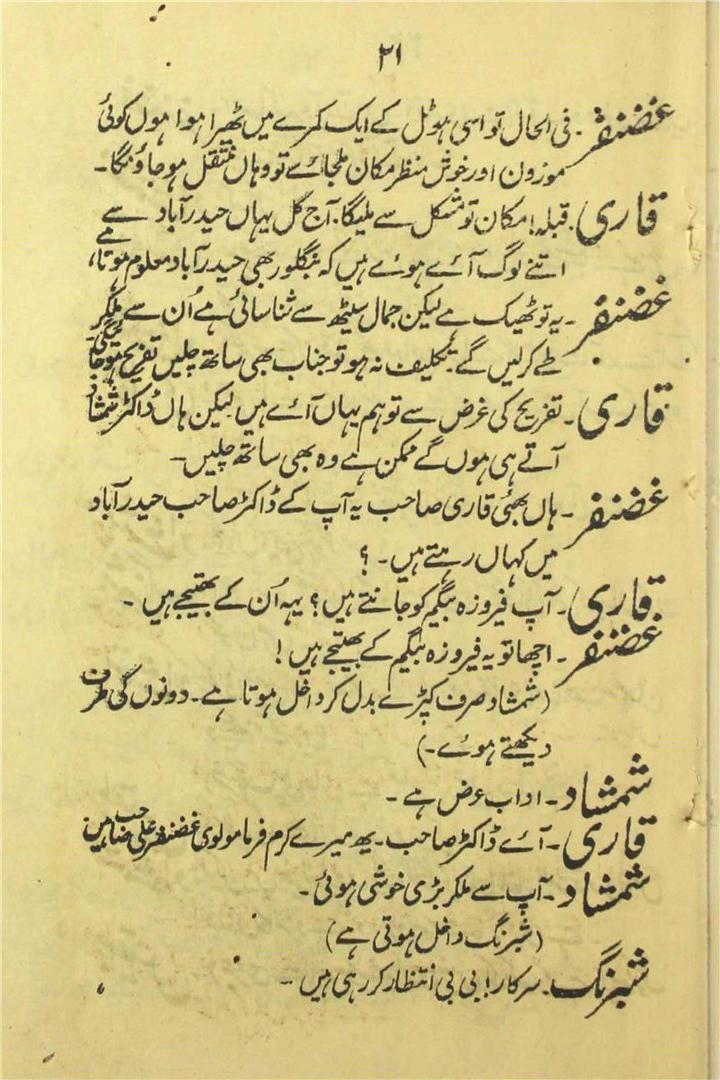 ۲۱
غضنفر۔ فی الحال تو اسی ہوٹل کے ایک کمرے میں ٹھیرا ہوا ہوں کوئی
موزون اور خوش منظر مکان ملجائے تو وہاں منتقل ہو جاؤنگا۔
قاری۔ قبلہ! مکان تو مشکل سے ملیگا۔ آج کل یہاں حیدرآباد سے
اتنے لوگ آئے ہوئے ہیں کہ بنگلور بھی حیدرآباد معلوم ہوتا ہے،
غضنفر۔ یہ تو ٹھیک ہے لیکن جمال سیٹھ سے شناسائی ہے اُن سے ملکر
طے کرلیں گے۔ تکلیف نہ ہو تو جناب بھی ساتھ چلیں تفریح ہو جائیگی
قاری۔ تفریح کی غرض سے تو ہم یہاں آئے ہیں لیکن ہاں ڈاکٹر شمشاد
آتے ہی ہوں گے ممکن ہے وہ بھی ساتھ چلیں۔
غضنفر۔ ہاں بھئی قاری صاحب یہ آپ کے ڈاکٹر صاحب حیدرآباد
میں کہاں رہتے ہیں۔ ؟
قاری۔ آپ فیروزہ بیگم کو جانتے ہیں؟ یہہ اُن کے بھتیجے ہیں۔
غضنفر۔ اچھا تو یہ فیروزہ بیگم کے بھتیجے ہیں!
(شمشاد صرف کپڑے بدل کر داخل ہوتا ہے۔ دونوں کی طرف
دیکھتے ہوئے۔)
شمشاد۔ اداب عرض ہے۔
قاری۔ آئے ڈاکٹر صاحب۔ یہ میرے کرم فرما مولوی غضنفر علی صاحب ہیں
شمشاد۔ آپ سے ملکر بڑی خوشی ہوئی۔
(شبرنگ داخل ہوتی ہے)
شبرنگ۔ سرکار! بی بی انتظار کر رہی ہیں۔